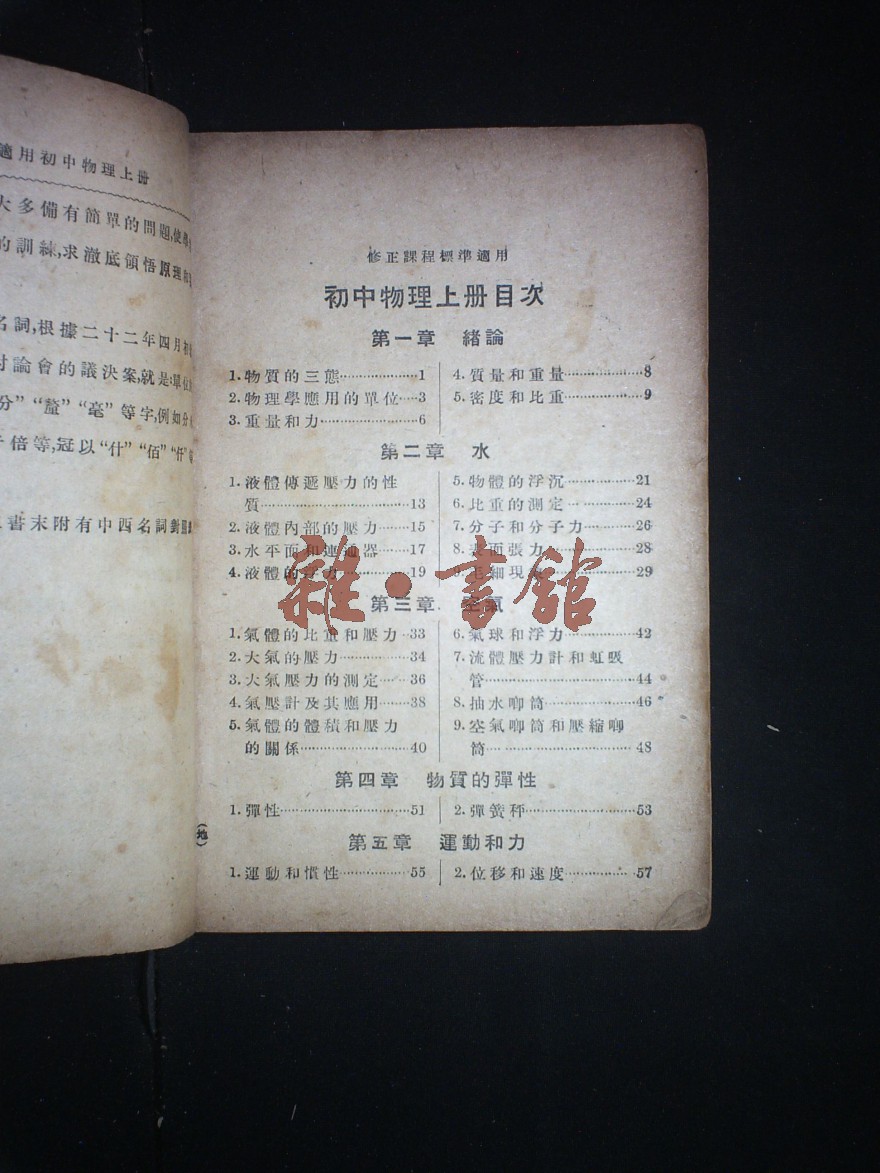 適用初中物理上册
大多備有簡單的問題,使學
的訓練,求澈底領悟原理和
名詞,根據二十二年四月初
討論會的議決案,就是:單位
分” “釐” “毫” 等字,例如分
倍等,冠以 “什” “佰” “仟”
書末附有中西名詞對照
修正課程標準適用
初中物理上册目次
第一章 緒論
1. 物質的三態………………1
2. 物理學應用的單位…3
3. 重量和力………………6
4. 質量和重量………………8
5. 密度和比重………………9
第二章 水
1. 液體傳遞壓力的性
質………………………………13
2. 液體內部的壓力……15
3. 水平面和連通器……17
4. 液體的浮力…………19
5. 物體的浮沉…………21
6. 比重的測定…………24
7. 分子和分子力………26
8. 表面張力……………28
9. 毛細現象……………29
第三章 空氣
1. 氣體的比重和壓力…33
2. 大氣的壓力…………34
3. 大氣壓力的測定……36
4. 氣壓計及其應用……38
5. 氣體的體積和壓力
的關係…………………40
6. 氣球和浮力…………42
7. 流體壓力計和虹吸
管………………………………44
8. 抽水唧筒……………46
9. 空氣唧筒和壓縮唧
筒………………………………48
第四章 物質的彈性
1. 彈性……………………51
2. 彈簧秤…………………53
第五章 運動和力
1. 運動和慣性…………55
2. 位移和速度…………57
(地)
雜·書館